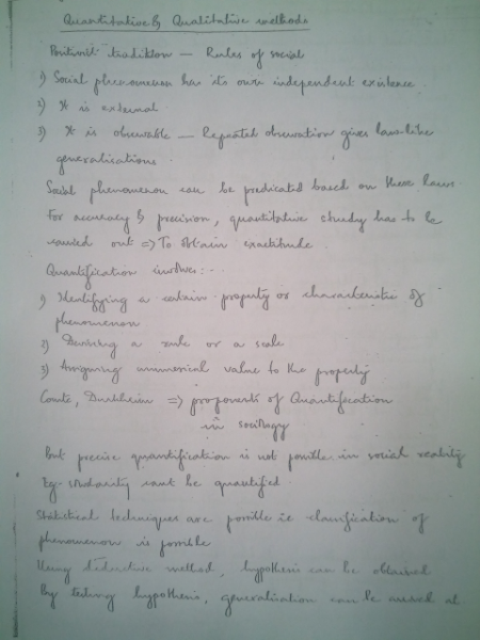 Quantitative & Qualitative methods
Positivist tradition — Rules of social
1) Social phenomenon has its own independent existence.
2) It is external
3) It is observable — Repeated observation gives law-like
generalisations.
Social phenomenon can be predicated based on these laws.
For accuracy & precision, quantitative study has to be
carried out => To obtain exactitude.
Quantification involves:-
1) Identifying a certain property or characteristic of
phenomenon
2) Devising a rule or a scale
3) Assigning numerical value to the property
Comte, Durkheim => proponents of Quantification
in sociology
But precise quantification is not possible in social reality
Eg- solidarity cant be quantified.
Statistical techniques are possible ie classification of
phenomenon is possible
Using deductive method, hypothesis can be obtained
By testing hypothesis, generalisation can be arrived at